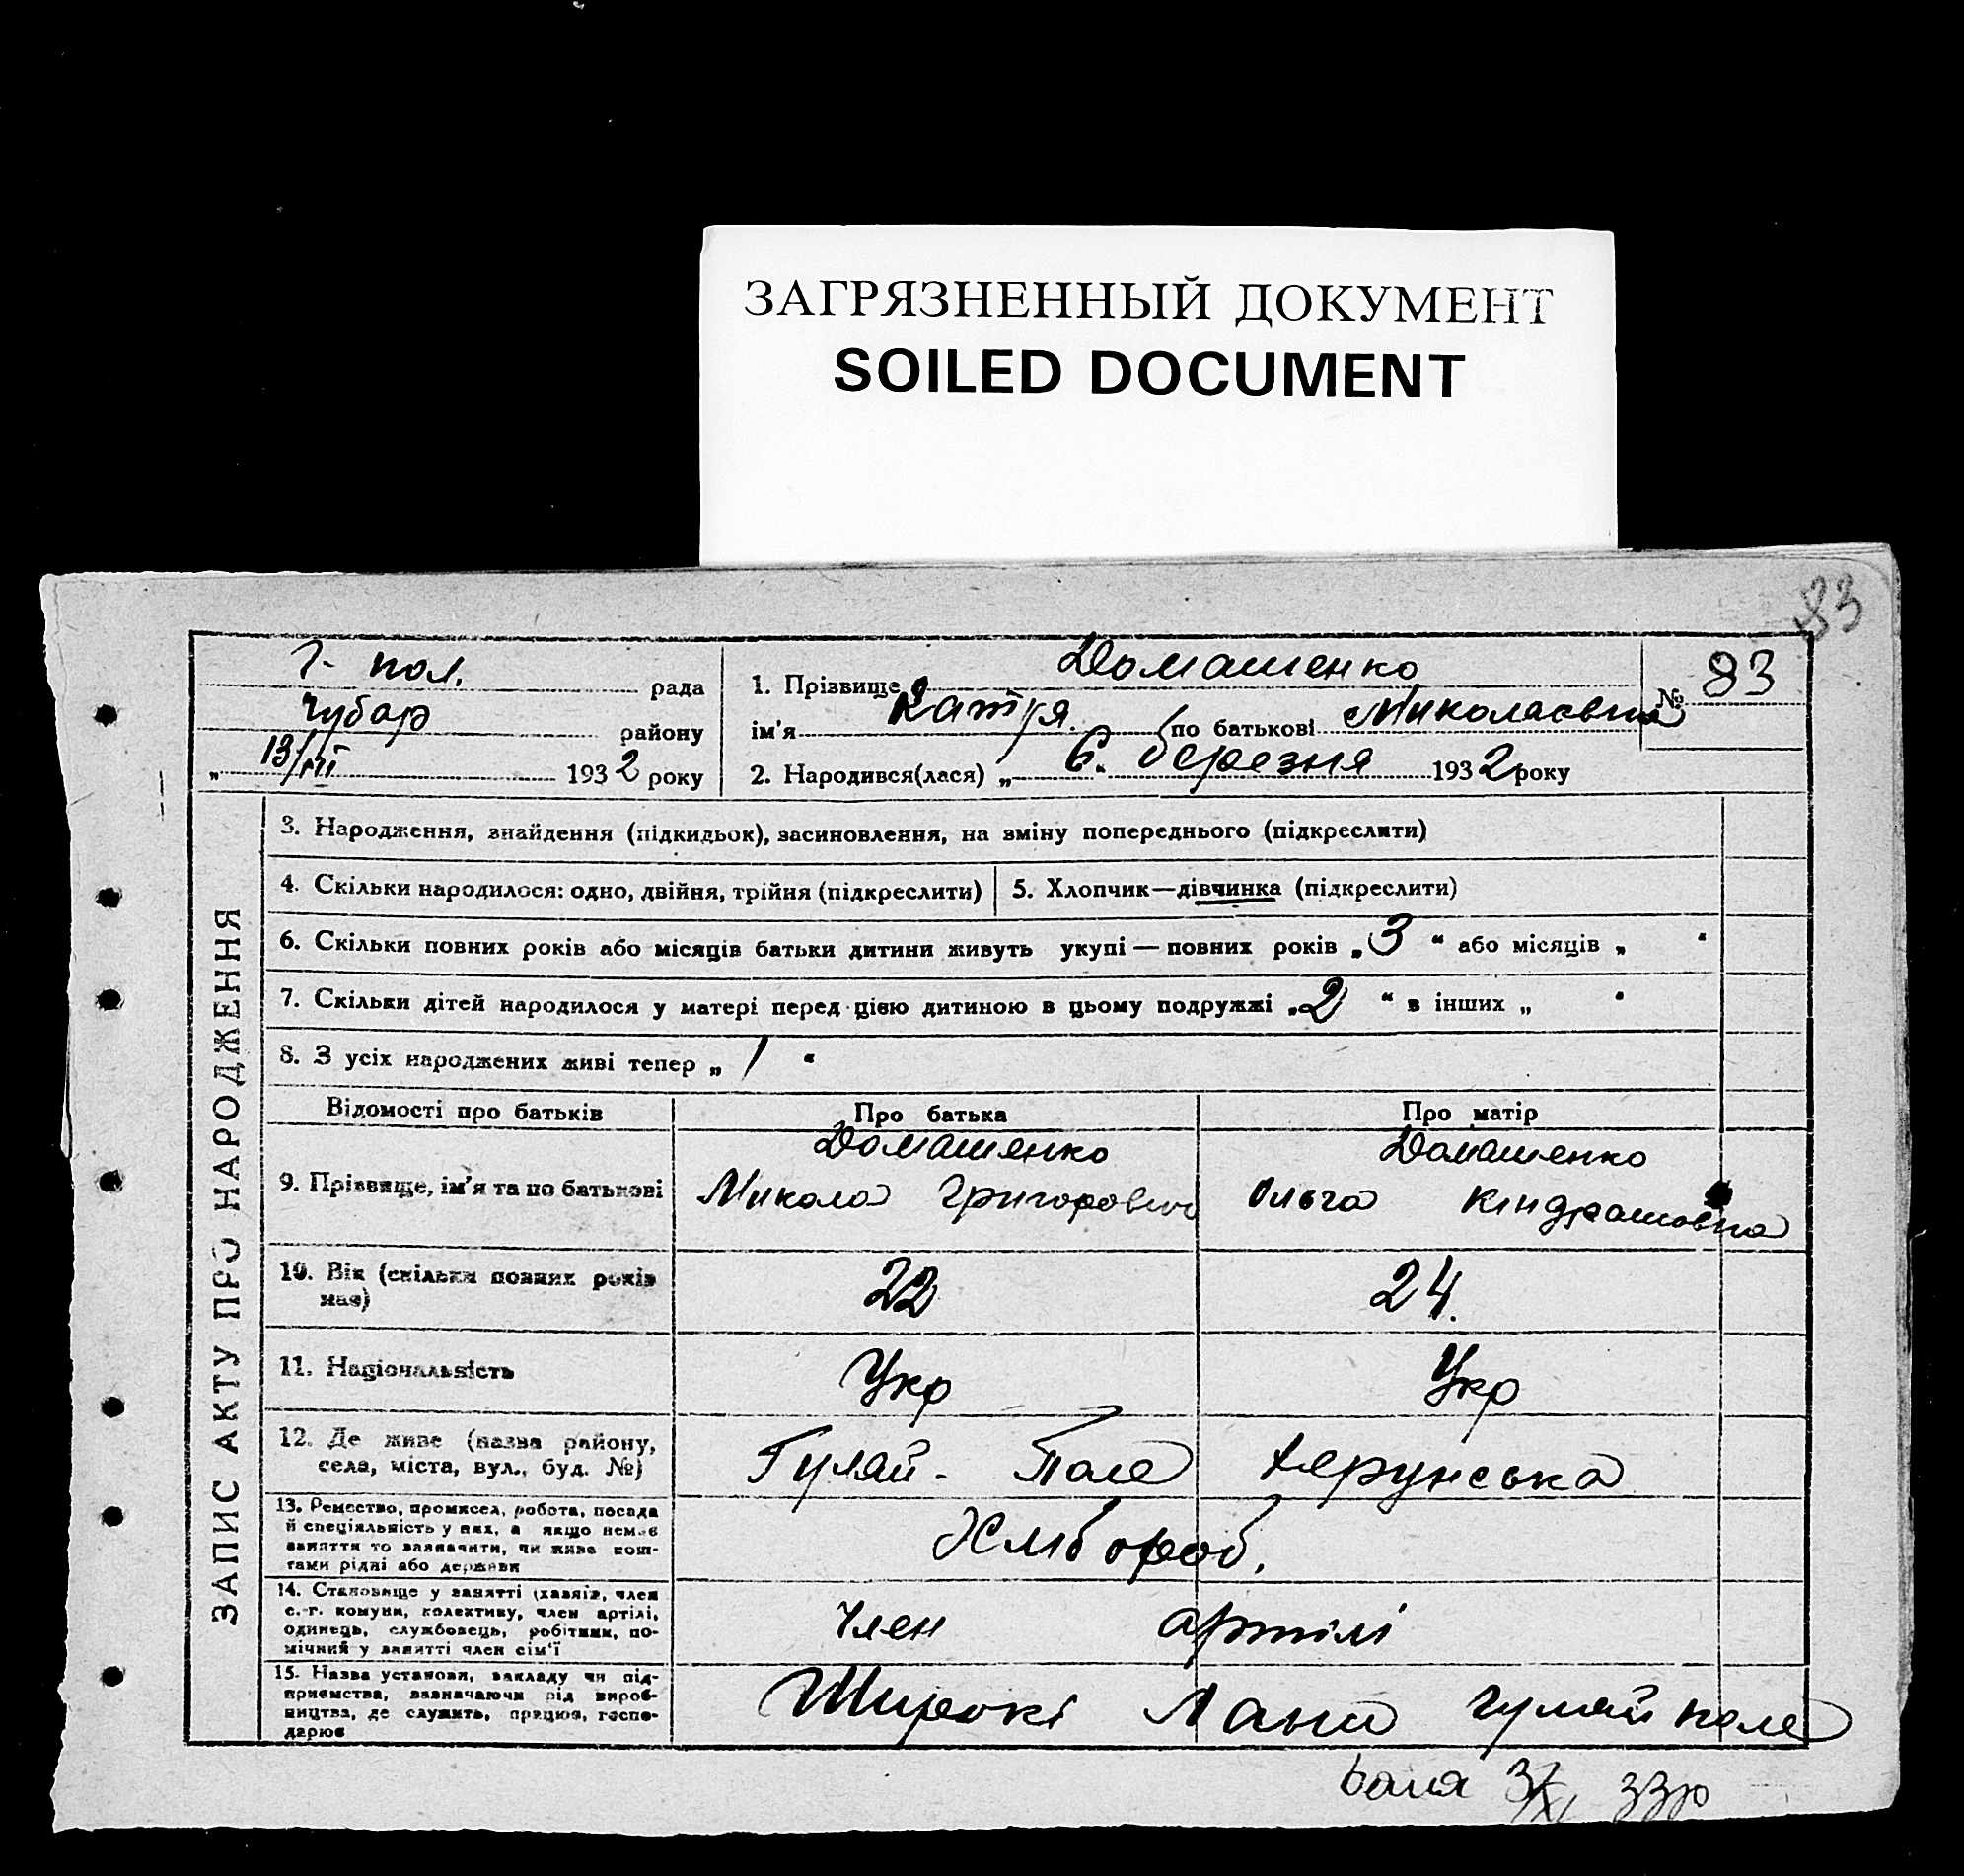 ЗАГРЯЗНЕННЫЙ ДОКУМЕНТ
SOILED DOCUMENT
83
Г- пол. рада
Чубар району
„ 13/III 1932 року
1. Прізвище Домашенко
ім'я Катря по батькові Миколаєвна
2. Народився(лася) „ 6 “ березня 1932 року
№ 83
ЗАПИС АКТУ ПРО НАРОДЖЕННЯ
3. Народження, знайдення (підкидьок), засиновлення, на зміну попереднього (підкреслити)
4. Скільки народилося: одно, двійня, трійня (підкреслити)
5. Хлопчик—дівчинка (підкреслити)
6. Скільки повних років або місяців батьки дитини живуть укупі — повних років „ 3 “ або місяців „ “
7. Скільки дітей народилося у матері перед цією дитиною в цьому подружжі „ 2 “ в інших „ “
8. З усіх народжених живі тепер „ 1 “
Відомості про батьків Про батька Про матір
9. Прізвище, ім'я та по батькові
Домашенко
Микола Григорович
Домашенко
Ольга Кіндратовна
10. Вік (скільки повних років
має)
22 24.
11. Національність Укр Укр
12. Де живе (назва району,
села, міста, вул., буд. №)
Гуляй - Поле
13. Ремество, промисел, робота, посада
й спеціяльність у них, а якщо немає
заняття то зазначити, чи живе кош-
тами рідні або держави
Хлібороб.
14. Становище у занятті (хазяїн, член
с.-г. комуни, колективу, член артілі,
одинець, службовець, робітник, по-
мічний у занятті член сім'ї
член артілі
15. Назва установи, закладу чи під-
приємства, зазначаючи рід вироб-
ництва, де служить, працює, госпо-
дарює
Широкі Лани Гуляй поле
33р